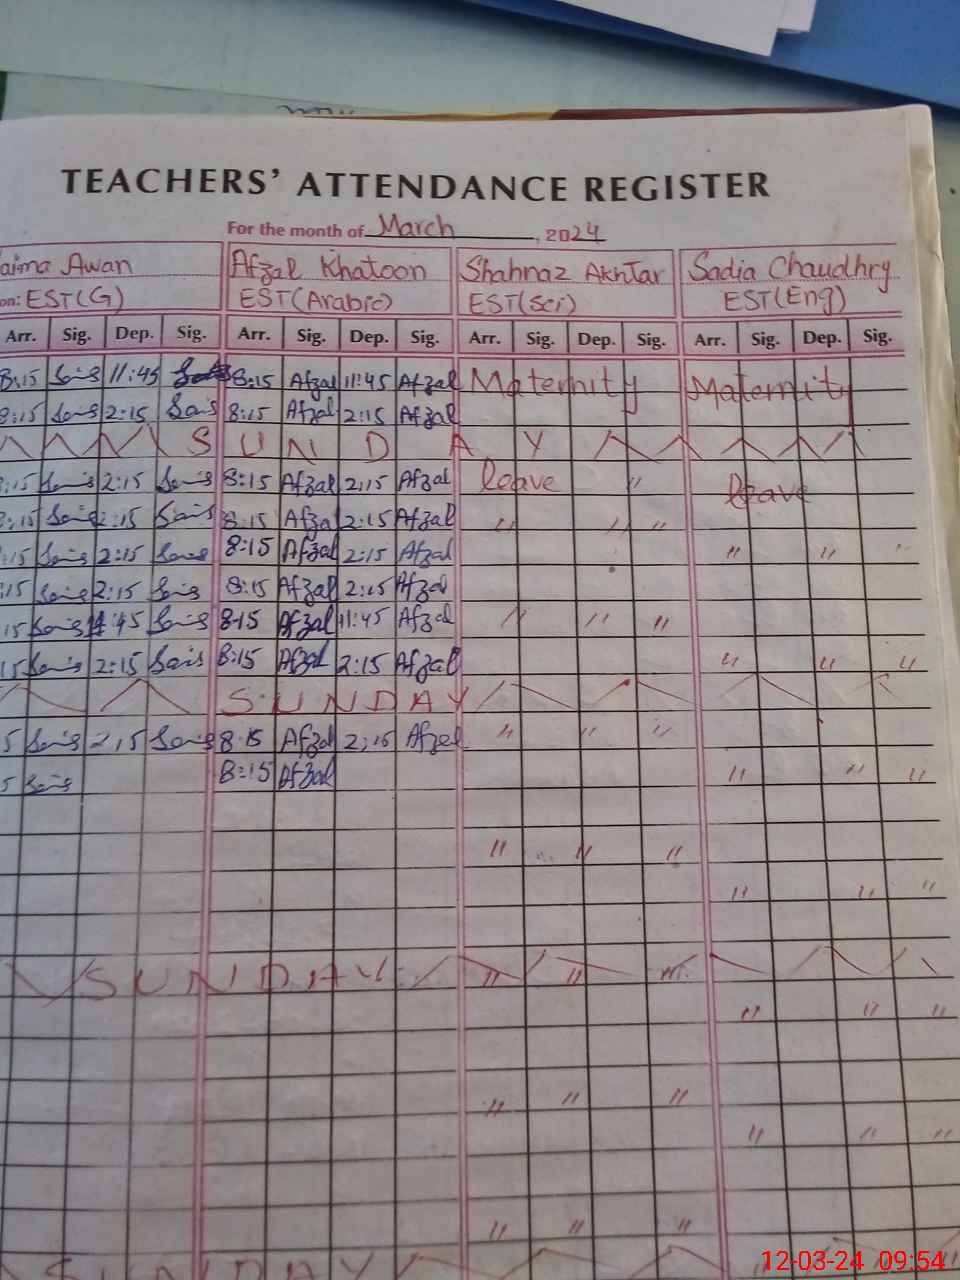 TEACHERS' ATTENDANCE REGISTER
For the month of March, 2024
aima Awan Afzal Khatoon Shahnaz Akhtar Sadia Chaudhry
on: EST(G) EST(Arabic) EST(Sci) EST(Eng)
Arr. Sig. Dep. Sig. Arr. Sig. Dep. Sig. Arr. Sig. Dep. Sig. Arr. Sig. Dep. Sig.
8:15 11:45 8:15 Afzal 11:45 Afzal Maternity Maternity
8:15 2:15 8:15 Afzal 2:15 Afzal
SUNDAY
:15 2:15 8:15 Afzal 2:15 Afzal leave " leave
8:15 2:15 8:15 Afzal 2:15 Afzal " " "
:15 2:15 8:15 Afzal 2:15 Afzal " " "
:15 2:15 8:15 Afzal 2:15 Afzal
15 11:45 8:15 Afzal 11:45 Afzal " " "
15 2:15 8:15 Afzal 2:15 Afzal " " "
SUNDAY
5 2:15 8:15 Afzal 2:15 Afzal " " "
5 8:15 Afzal " " "
" " "
" " "
SUNDAY " "
" " "
" " "
" " "
" " "
SUNDAY
12-03-24 09:54